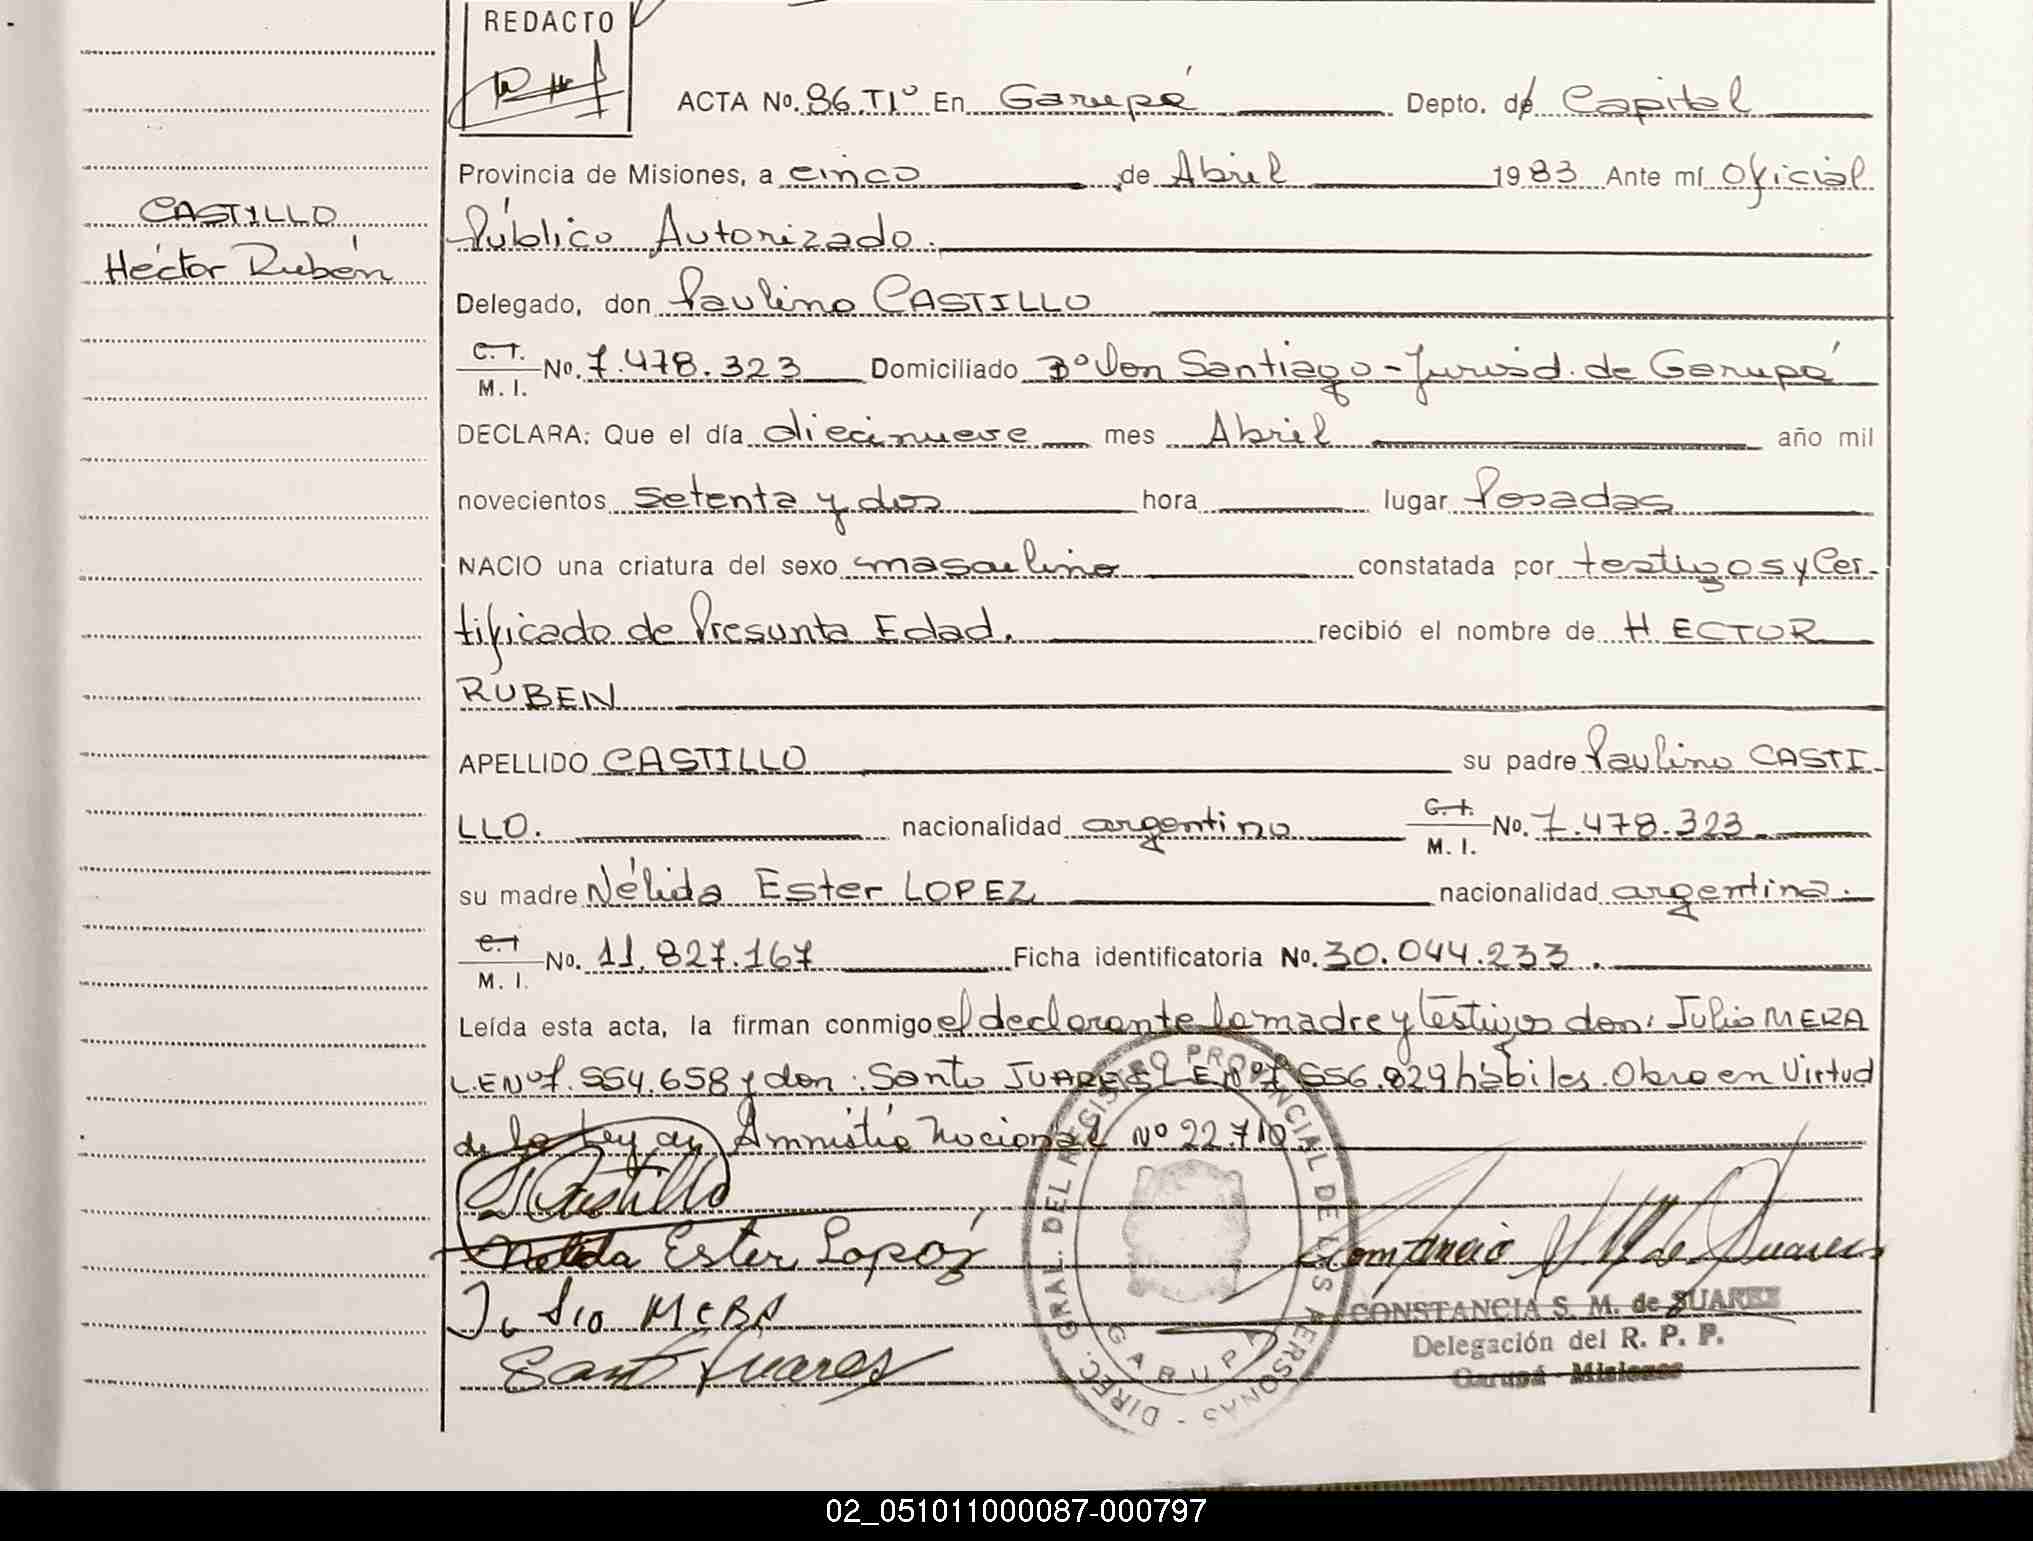 REDACTO
ACTA No. 86. T1º En Garupá Depto. de Capital
Provincia de Misiones, a cinco de Abril 1983 Ante mí Oficial
Público Autorizado.
CASTILLO
Héctor Rubén
Delegado, don Paulino CASTILLO
C.I. M. I. No. 7.478.323 Domiciliado Bº Don Santiago - Jurisd. de Garupá
DECLARA: Que el día diecinueve mes Abril año mil
novecientos setenta y dos hora lugar Posadas
NACIO una criatura del sexo masculino constatada por testigos y Cer-
tificado de Presunta Edad. recibió el nombre de HECTOR
RUBEN
APELLIDO CASTILLO su padre Paulino CASTI-
LLO. nacionalidad argentino C.I. M. I. No. 7.478.323
su madre Nélida Ester LOPEZ nacionalidad argentina.
C.I M. I. No. 11.827.167 Ficha identificatoria No. 30.044.233.
Leída esta acta, la firman conmigo el declarante la madre y testigos don: Julio MERA
L.E Nº 7.554.658 y don: Santo JUAREZ L E Nº 7.556.829 hábiles. Obra en Virtud
de la Ley de Amnistía Nacional Nº 22.710
Castillo
Nelida Ester Lopez
Julio MERA
Santo Juarez
DIREC. GRAL. DEL REGISTRO PROVINCIAL DE LAS PERSONAS -
GARUPA
Constancia de Suarez
CONSTANCIA S. M. de SUAREZ
Delegación del R. P. P.
Garupá - Misiones
02_051011000087-000797